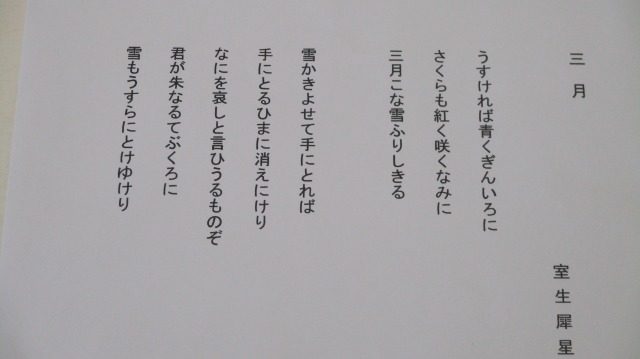 三月
室生犀星
うすければ青くぎんいろに
さくらも紅く咲くなみに
三月こな雪ふりしきる
雪かきよせて手にとれば
手にとるひまに消えにけり
なにを哀しと言ひうるものぞ
君が朱なるてぶくろに
雪もうすらにとけゆけり